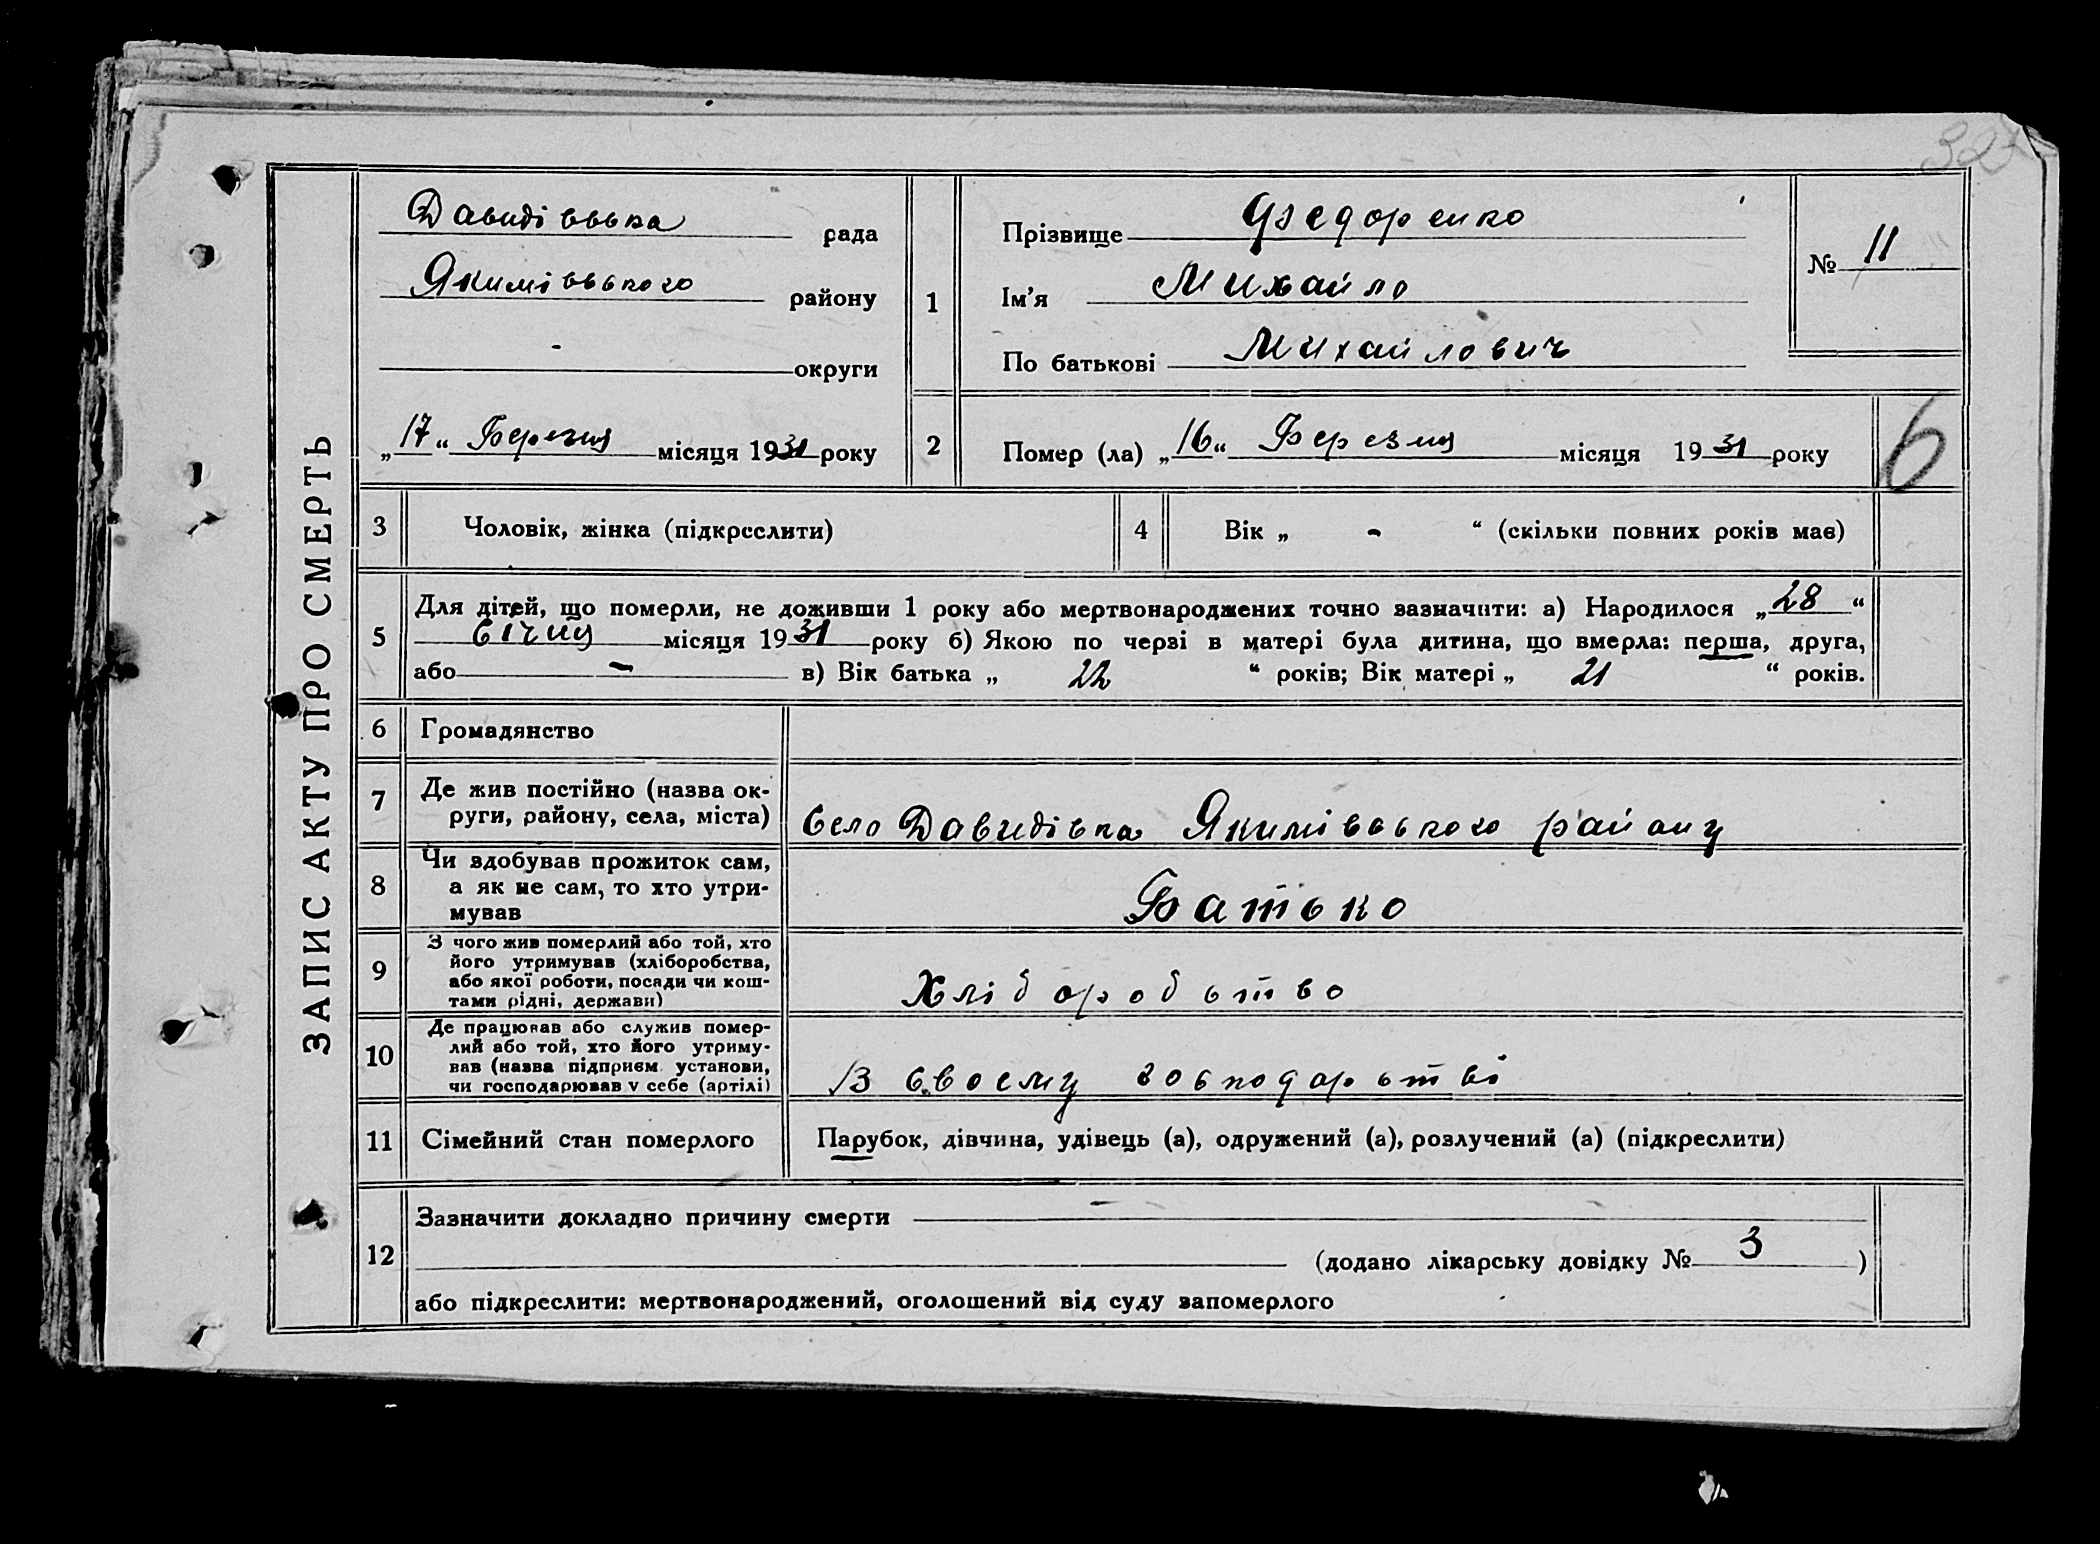 327
ЗАПИС АКТУ ПРО СМЕРТЬ
Давидівська рада
Якимівського району
- округи
„17“ Березня місяця 1931 року
1
Прізвище Федоренко
Ім’я Михайло
По батькові Михайлович
№ 11
2
Помер (ла) „16“ Березня місяця 1931 року
6
3 Чоловік, жінка (підкреслити)
4 Вік „ - “ (скільки повних років має)
5
Для дітей, що померли, не доживши 1 року або мертвонароджених точно зазначити: а) Народилося „28“
Січня місяця 1931 року б) Якою по черзі в матері була дитина, що вмерла: перша, друга,
або - в) Вік батька „ 22 “ років; Вік матері „ 21 “ років.
6 Громадянство
7
Де жив постійно (назва ок-
руги, району, села, міста)
Село Давидівка Якимівського району
8
Чи здобував прожиток сам,
а як не сам, то хто утри-
мував
Батько
9
З чого жив померлий або той, хто
його утримував (хліборобства,
або якої роботи, посади чи кош-
тами рідні, держави)
Хліборобство
10
Де працював або служив помер-
лий або той, хто його утриму-
вав (назва підприєм. установи,
чи господарював у себе (артілі)
В своєму господарстві
11 Сімейний стан померлого
Парубок, дівчина, удівець (а), одружений (а), розлучений (а) (підкреслити)
12
Зазначити докладно причину смерти -
(додано лікарську довідку № 3 )
або підкреслити: мертвонароджений, оголошений від суду запомерлого